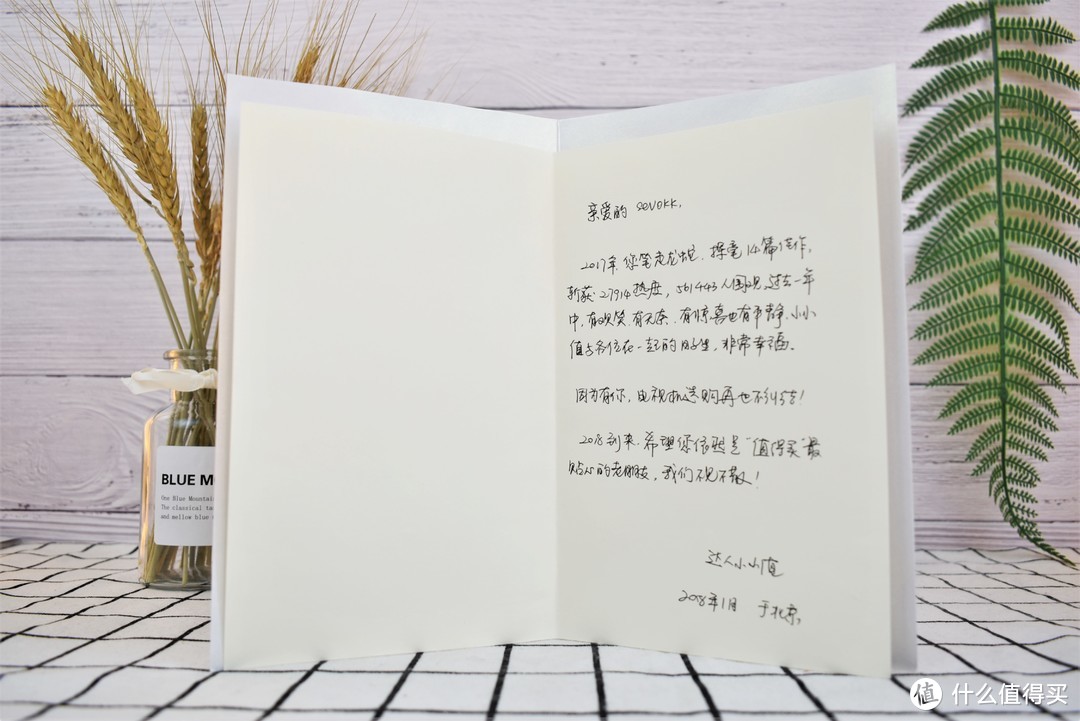 亲爱的 sevekk,
2017年,您笔走龙蛇、挥毫14篇佳作,
斩获27914热度,561443人围观,过去一年
中,有欢笑、有无奈、有惊喜也有平静、小小
值与各位在一起的日子里,非常幸福。
因为有你,电视机选购再也不纠结!
2018到来,希望您依然是“值得买”最
贴心的老朋友,我们不见不散!
达人小小值
2018年1月 于北京,
BLUE M
One Blue Mountai
The classical ta
and mellow blue
值 什么值得买